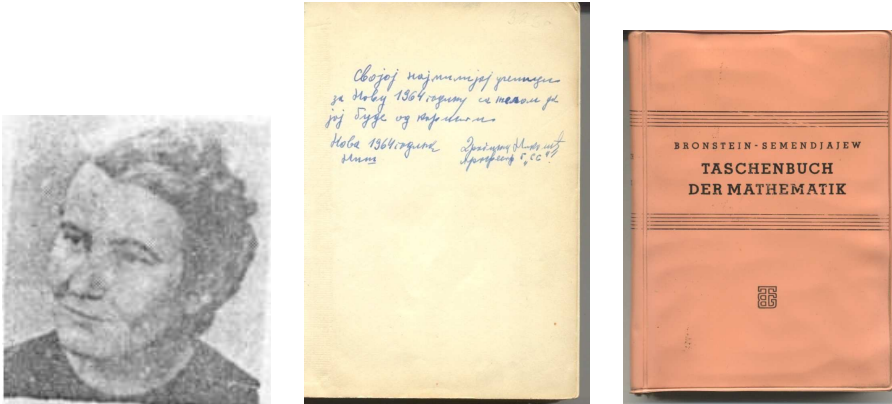 Својој најмилијој ученици
за Нову 1964 годину са жељом да
јој буде од користи
Нова 1964 година
Ниш
BRONSTEIN·SEMENDJAJEW
TASCHENBUCH
DER MATHEMATIK